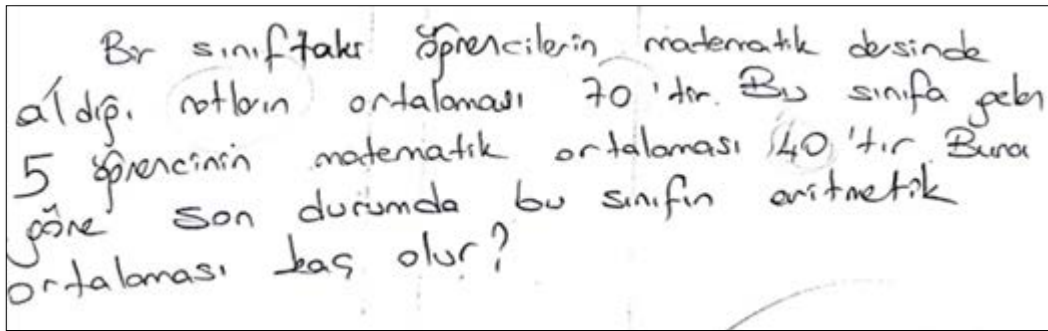 Bir sınıftaki öğrencilerin matematik dersinde
aldığı notların ortalaması 70'tir. Bu sınıfa gelen
5 öğrencinin matematik ortalaması 40'tır. Buna
göre son durumda bu sınıfın aritmetik
ortalaması kaç olur?